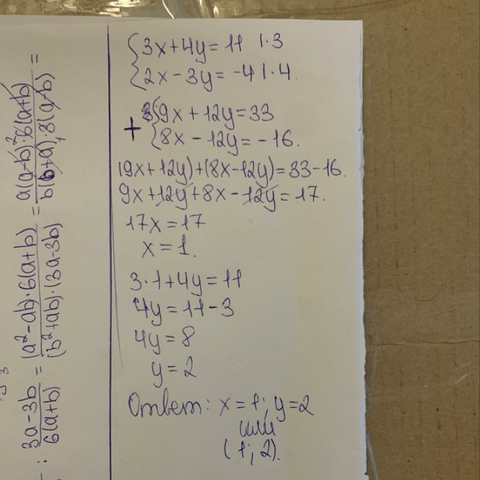 {3x+4y=11 |·3
{2x-3y=-4 |·4.
{9x+12y=33
+ {8x-12y=-16.
(9x+12y)+(8x-12y)=33-16.
9x+12y+8x-12y=17.
17x=17
x=1.
3·1+4y=11
4y=11-3
4y=8
y=2
Ответ: x=1; y=2
или
(1; 2).
: 3a-3b / 6(a+b) = (a²-ab)·6(a+b) / (b²+ab)·(3a-3b) = a(a-b)·6(a+b) / b(b+a)·3(a-b) =